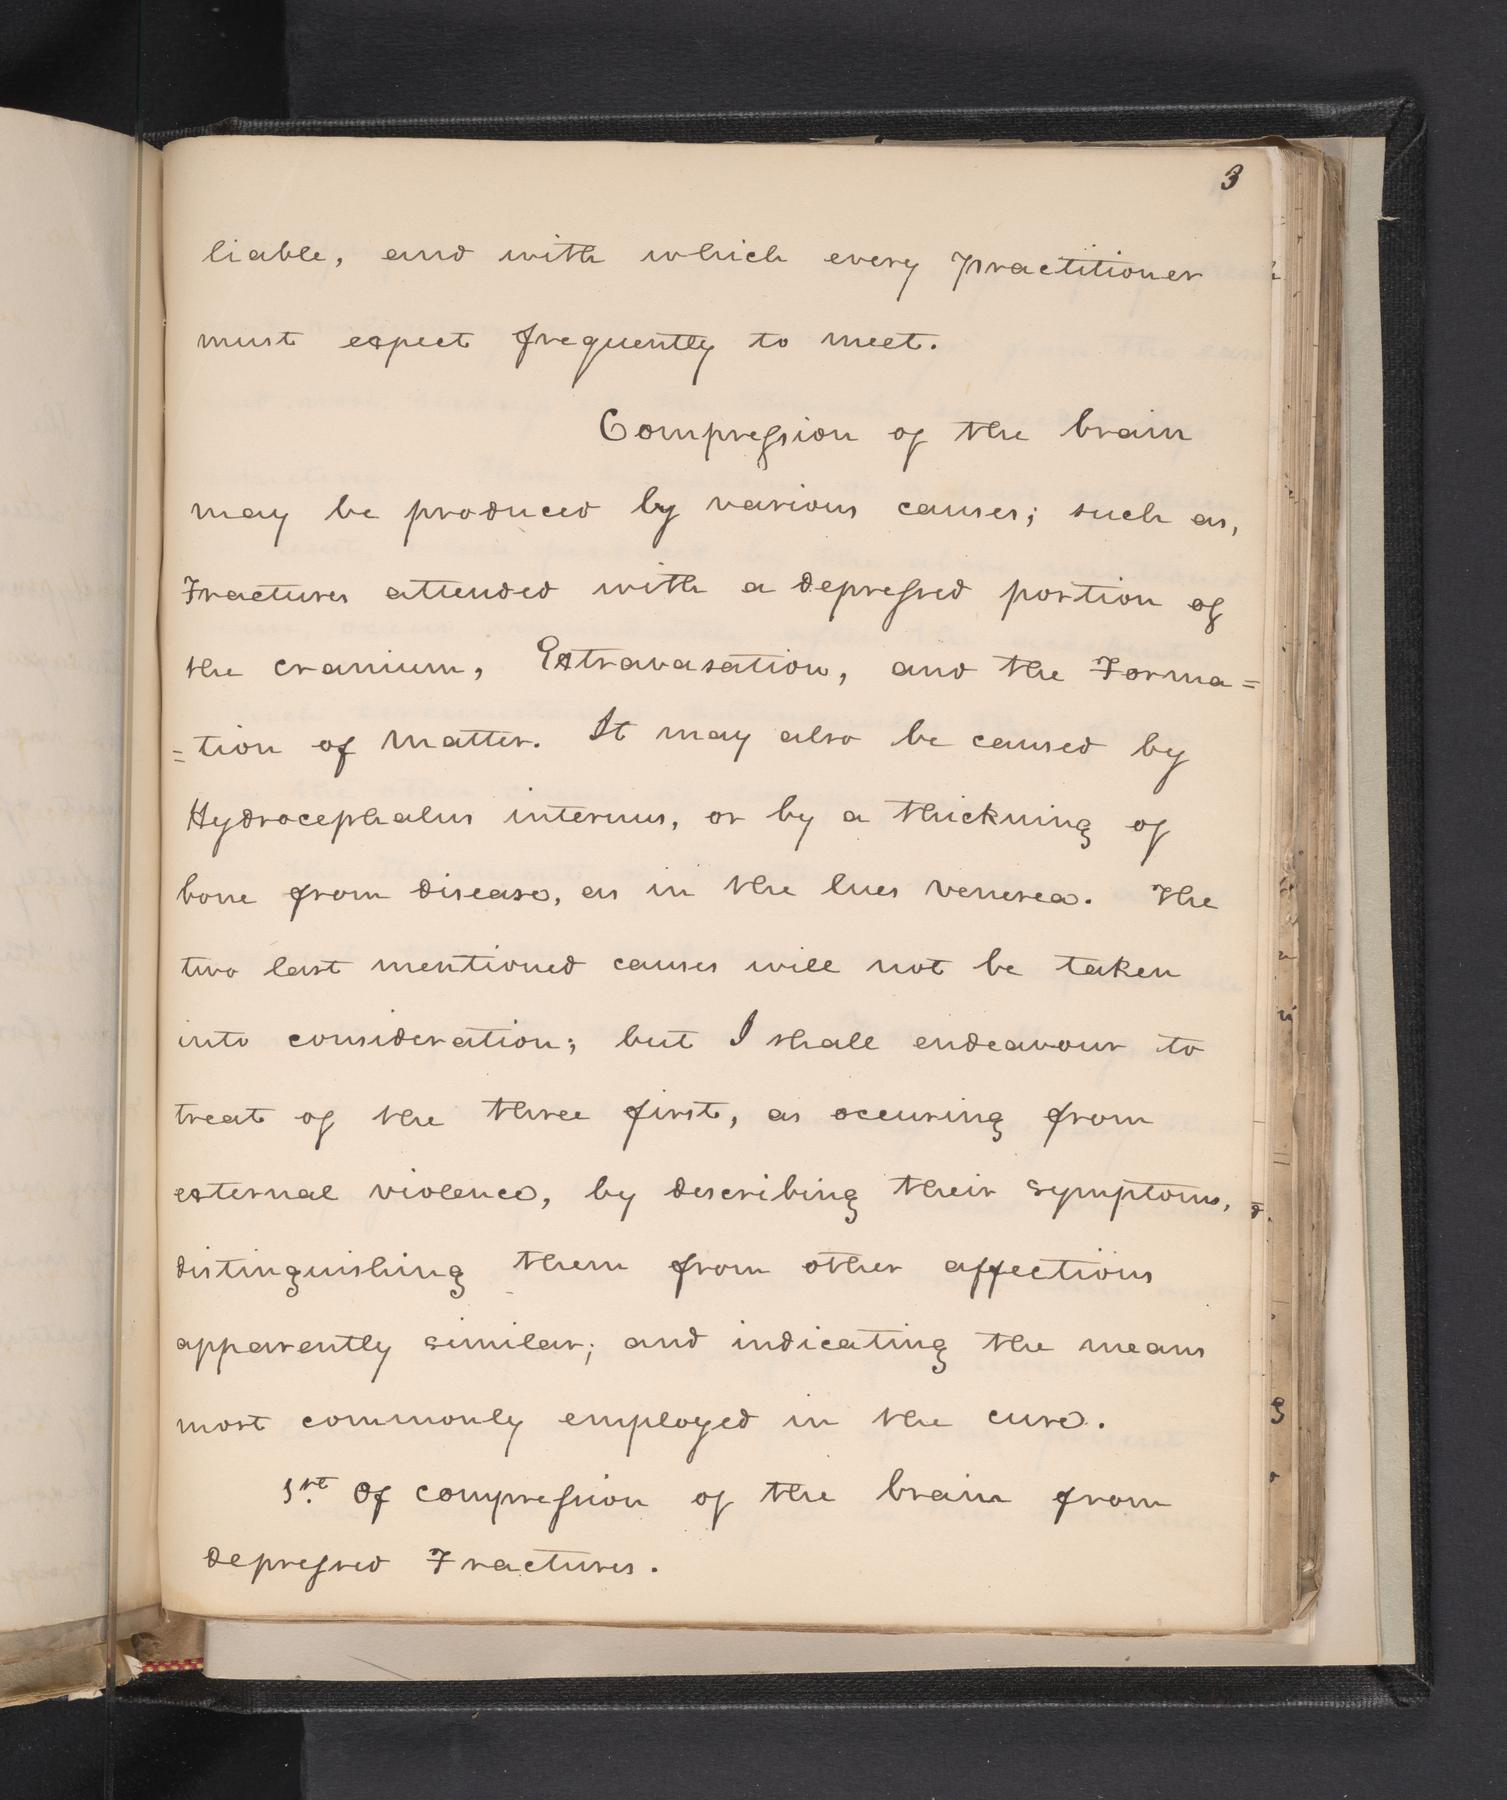 3
liable, and with which every practitioner
must expect frequently to meet.
Compreſsion of the brain
may be produced by various causes; such as,
Fractures attended with a depreſsed portion of
the cranium, Extravasation, and the Forma=
=tion of matter. It may also be caused by
Hydrocephalus internus, or by a thickning of
bone from disease, as in the lues venerea. The
two last mentioned causes will not be taken
into consideration; but I shall endeavour to
treat of the three first, as occuring from
external violence, by describing their symptoms,
distinguishing them from other affections
apparently similar; and indicating the means
most commonly employed in the cure.
1st. Of compreſsion of the brain from
depreſsed Fractures.